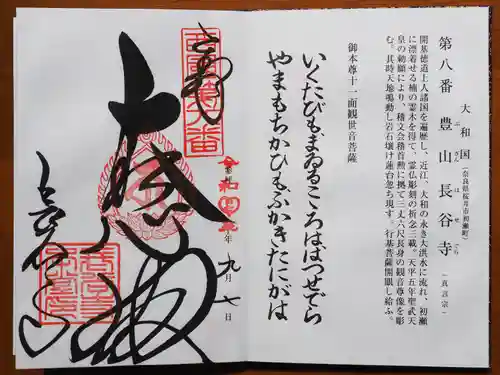 第八番
大和国
豊山長谷寺
ぶさんはせでら
（奈良県桜井市初瀬町）
（真言宗）
開基徳道上人諸国を遍歴し、近江、大和の永き大洪水に流れ、初瀬
に漂着せる楠の霊木を得て、霊仏彫刻の祈念三載。天平五年聖武天
皇の勅願により、稽文会稽首勲に拠て三丈六尺長身の観音尊像を彫
む。其時天地鳴動し岩石壊け蓮台忽ち現す。行基菩薩開眼し給ふ。
御本尊十一面観世音菩薩
いくたびもまゐるこころははつせでら
やまもちかひもふかきたにがは
奉拝
西国第八番
令和四年九月七日
大悲閣
長谷寺